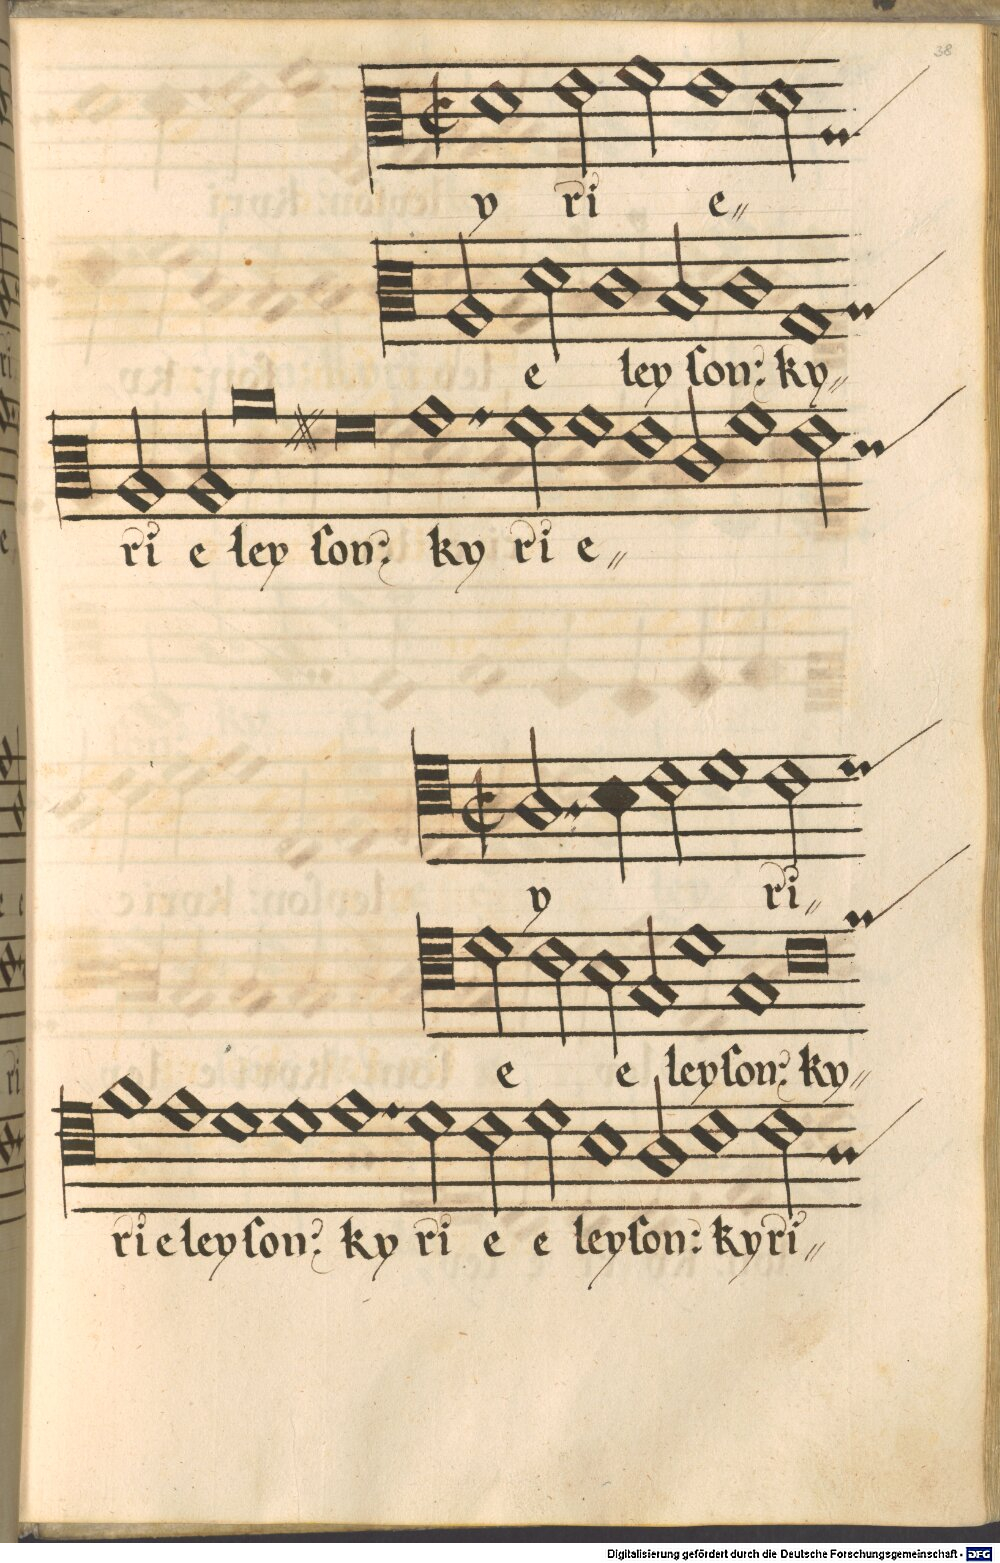 38
y ri e〃
e ley ſon: ky〃
ri e ley ſon: ky ri e〃
y ri〃
e e leyſon: ky〃
ri e leyſon: ky ri e e leyſon: kyri〃
Digitalisierung gefördert durch die Deutsche Forschungsgemeinschaft - DFG